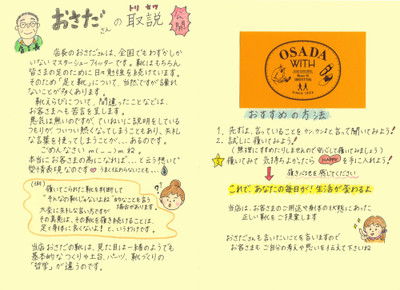 おさださんの取説
トリセツ
公開
店長のおさださんは、全国でもわずかしか
いないマスターシューフィッターです。靴はもちろん
皆さまの足のために日々勉強を続けています。
そのため「足と靴」について、当然ですが譲れ
ないことが多くあります。
靴えらびについて、間違ったことなどは、
お客さまへも苦言を呈します。
悪気は無いのですが、ていねいに説明をしている
つもりがついつい熱くなってしまうこともあり、失礼
な言葉を使ってしまうことが...あるのです。
ごめんなさいm(__)mね。
本当にお客さまの為になれば...と云う想いで
愛情表現なのです
うまく伝わらないんだけどもね...
(例)
履いてこられた靴を判断して
“そんなの靴じゃないよね”的なことを言う
場合があります。
大変に失礼な言い方ですが
その真意は、その靴を履き続けることは、
足と身体に良くないよ!というわけです。
当店おさだの靴は、見た目は一緒のようでも
基本的なつくりや土台、パーツ、靴づくりの
「哲学」が違うのです。
OSADA
WITH
おすすめの方法
1. 先ずは、言っていることをウンウンと言って聞いてみよう!
2. 試しに履いてみよう!
(無理にすすめたりしませんので安心して履いてみましょう)
★履いてみて気持ちよかったらHAPPYを手に入れよう!
履き心地を感じてください
これで、あなたの毎日が!生活が変わるよ
当店は、お客さまのご用途や身体の状態にあった
正しい靴をご提案します
おさださんも言いたいことを言いますので
お客さまもご自分の考えや思いを伝えて下さいね